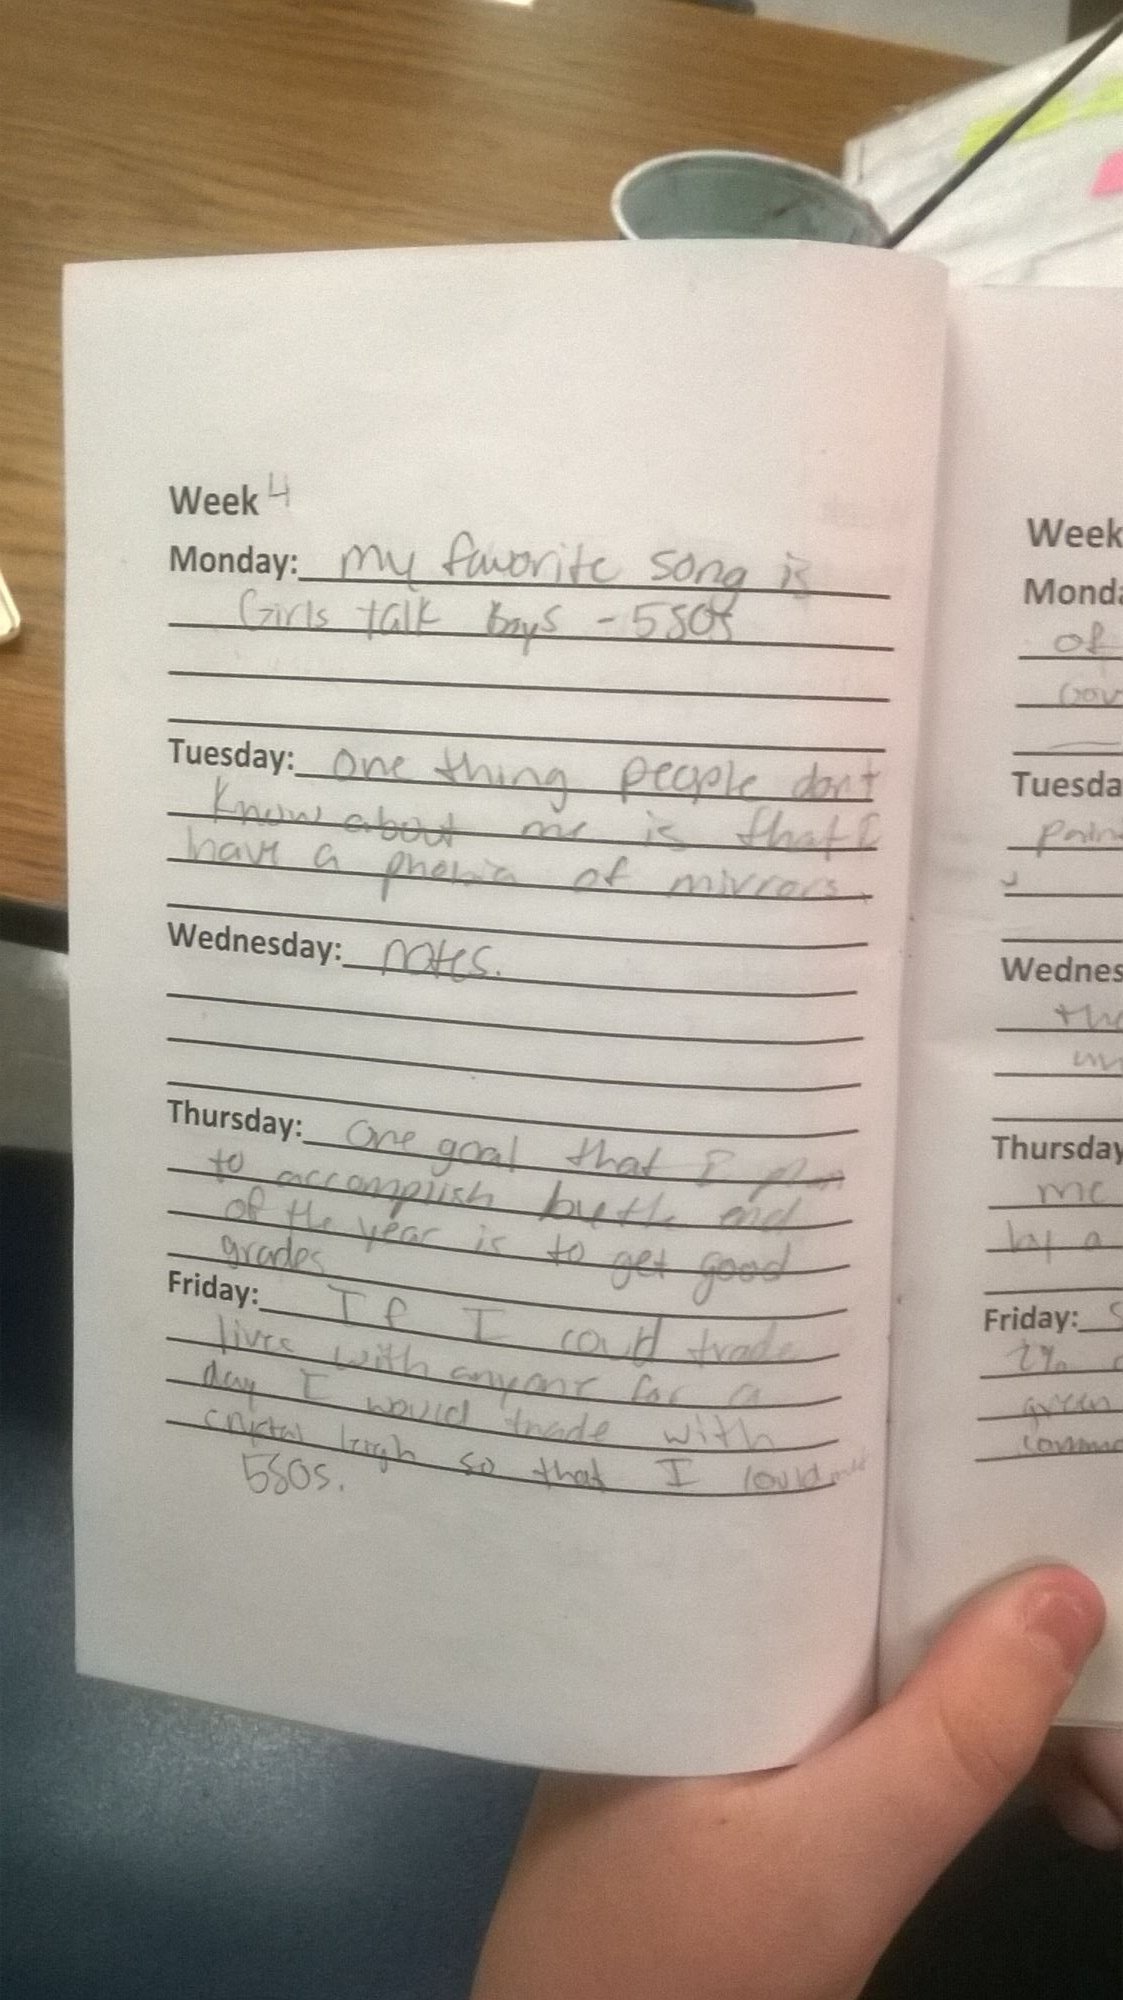 Week 4
Monday: my favorite song is
Girls talk boys - 5SOS
Tuesday: one thing people dont
know about me is that I
have a phobia of mirrors.
Wednesday: notes.
Thursday: one goal that I plan
to accomplish by the end
of the year is to get good
grades
Friday: If I could trade
lives with anyone for a
day I would trade with
crystal leigh so that I could
5SOS.
Week
Monda
of
Gov
Tuesda
pain
Wednes
the
Thursday
me
by a
Friday: S
green